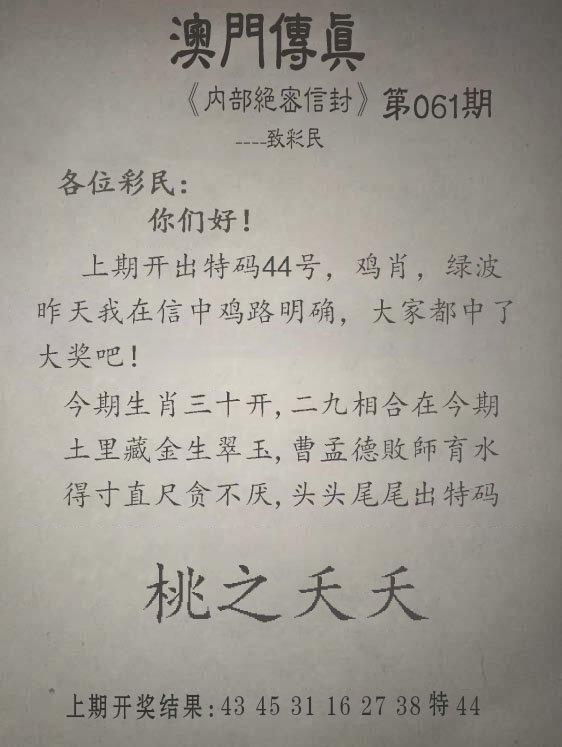 澳門傳眞
《内部絕密信封》第061期
----致彩民
各位彩民:
你们好!
上期开出特码44号，鸡肖，绿波
昨天我在信中鸡路明确，大家都中了
大奖吧!
今期生肖三十开,二九相合在今期
土里藏金生翠玉,曹孟德敗師育水
得寸直尺贪不厌,头头尾尾出特码
桃之夭夭
上期开奖结果:43 45 31 16 27 38 特 44